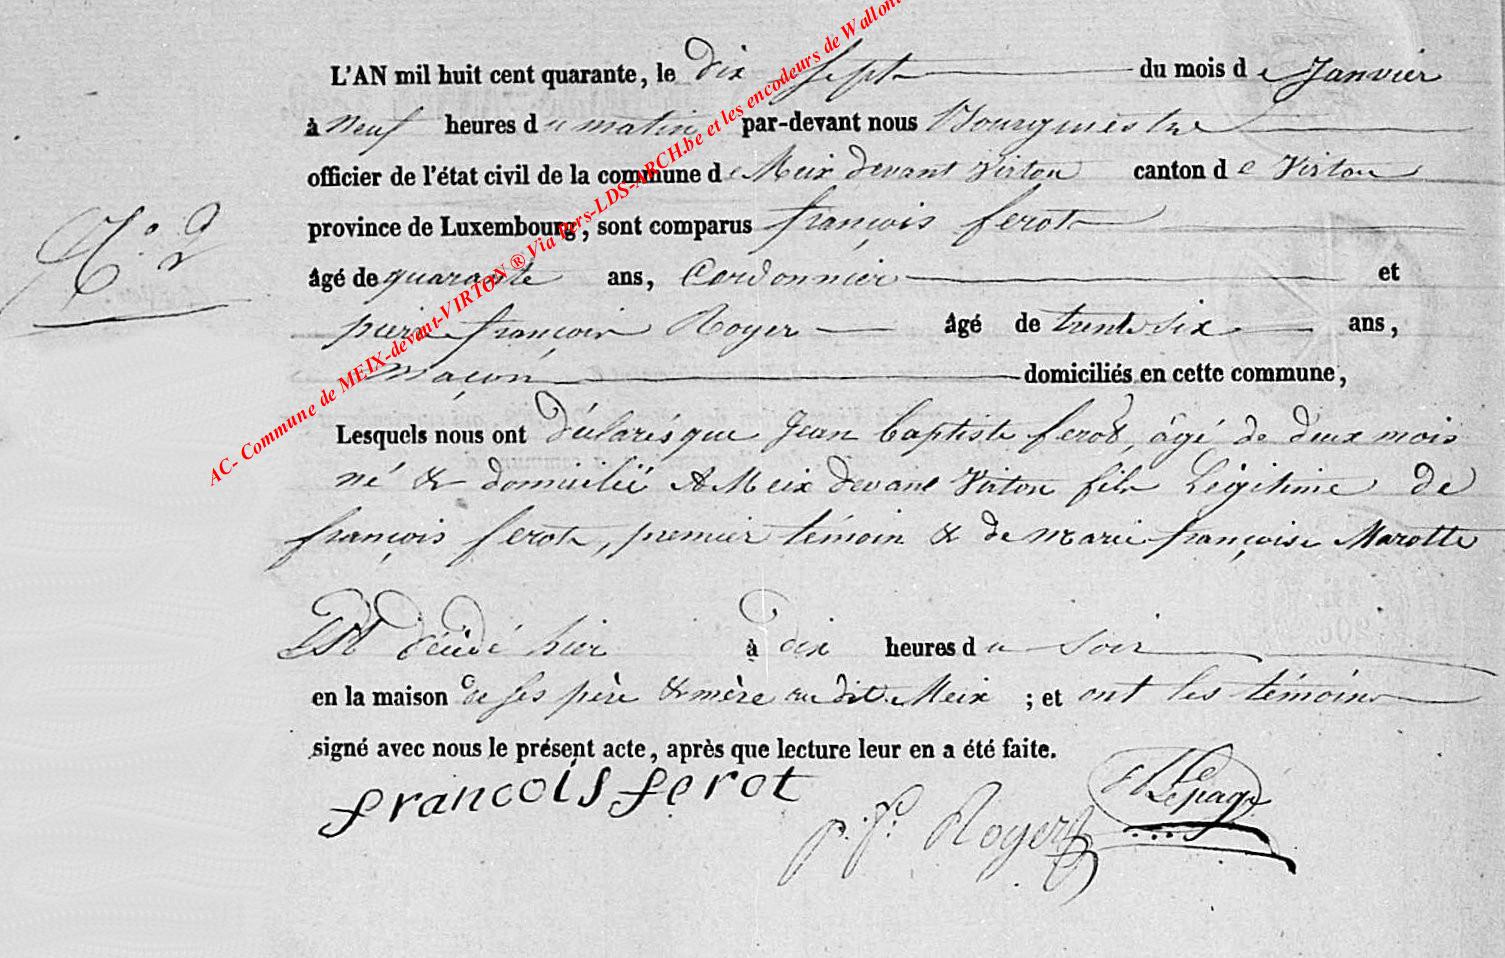 L'AN mil huit cent quarante, le dix sept du mois de Janvier
à neuf heures du matin par-devant nous Bourgmestre
officier de l'état civil de la commune de Meix devant Virton canton de Virton
N.o 2
province de Luxembourg, sont comparus françois ferot
âgé de quarante ans, Cordonnier et
pierre françois Royer âgé de trente six ans,
maçon domiciliés en cette commune,
Lesquels nous ont déclarés que Jean baptiste ferot, âgé de deux mois
né & domicilié à Meix devant Virton fils Légitime de
françois ferot, premier témoin & de marie françoise Marotte
Est décédé hier à dix heures du soir
en la maison de ses père & mère au dit Meix ; et ont les témoins
signé avec nous le présent acte, après que lecture leur en a été faite.
francois ferot
p. f. Royer
Lepage
AC- Commune de MEIX-devant-VIRTON ® Via Pers-LDS-ARCH.be et les encodeurs de